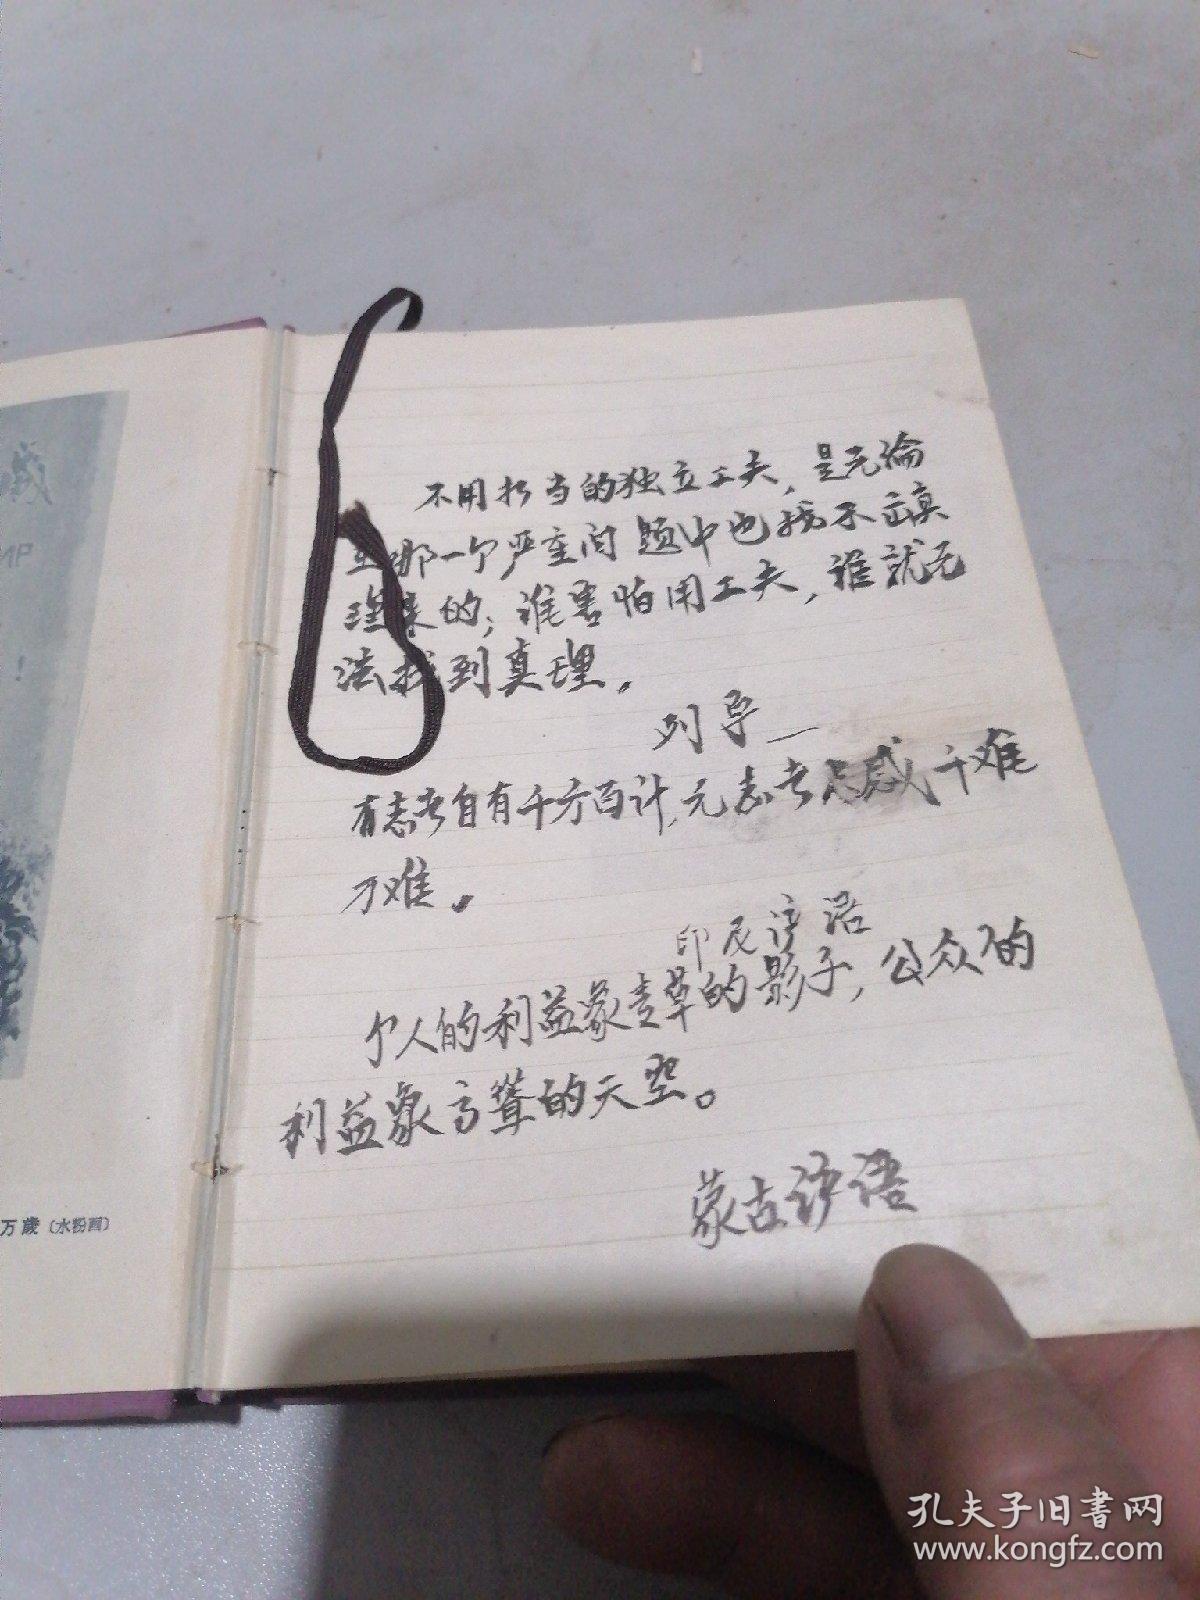 不用相当的独立工夫，是无论
在哪一个严重问题中也找不出真
理来的；谁害怕用工夫，谁就无
法找到真理。
列宁
有志者自有千方百计，无志者只感千难
万难。
印尼谚语
个人的利益象青草的影子，公众的
利益象高耸的天空。
蒙古谚语
万岁（水粉画）
孔夫子旧书网
www.kongfz.com